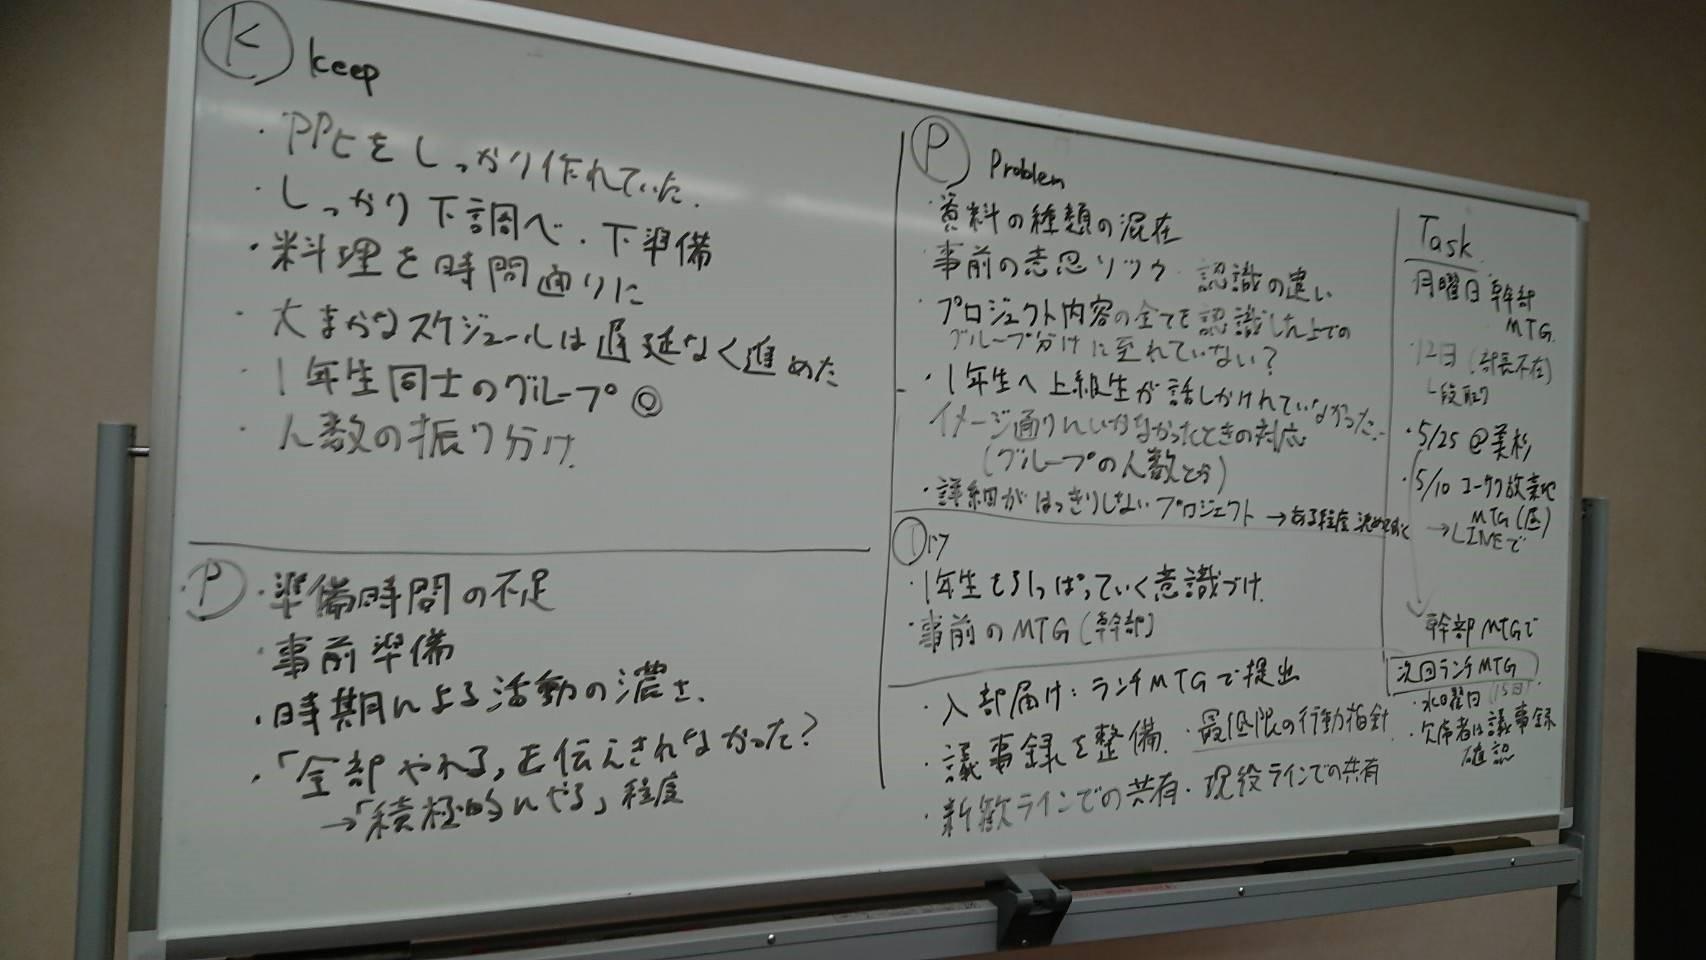 K keep
・PPをしっかり作れていた.
・しっかり下調べ・下準備
・料理を時間通りに
・大まかなスケジュールは遅延なく進めた
・1年生同士のグループ◎
・人数の振り分け
P ・準備時間の不足
・事前準備
・時期による活動の濃さ.
・「全部やれる」を伝えきれなかった?
→「積極的にやる」程度
P Problem
・資料の種類の混在
・事前の意思ソツウ 認識の違い
・プロジェクト内容の全てを認識した上での
グループ分けに至れていない?
・1年生へ上級生が話しかけれていなかった.
イメージ通りにいかなかったときの対応
(グループの人数とか)
・詳細がはっきりしないプロジェクト →ある程度決めておく
T ・1年生をひっぱっていく意識づけ.
・事前のMTG (幹部)
・入部届け: ランチMTGで提出
・議事録を整備. ・最低限の行動指針
・新歓ラインでの共有・現役ラインでの共有
Task
月曜日 幹部
MTG.
・12日(部長不在)
・5/25 @美杉
・5/10
MTG
→LINEで
幹部MTGで
次回ランチMTG
水曜日(15日).
・欠席者は議事録
確認